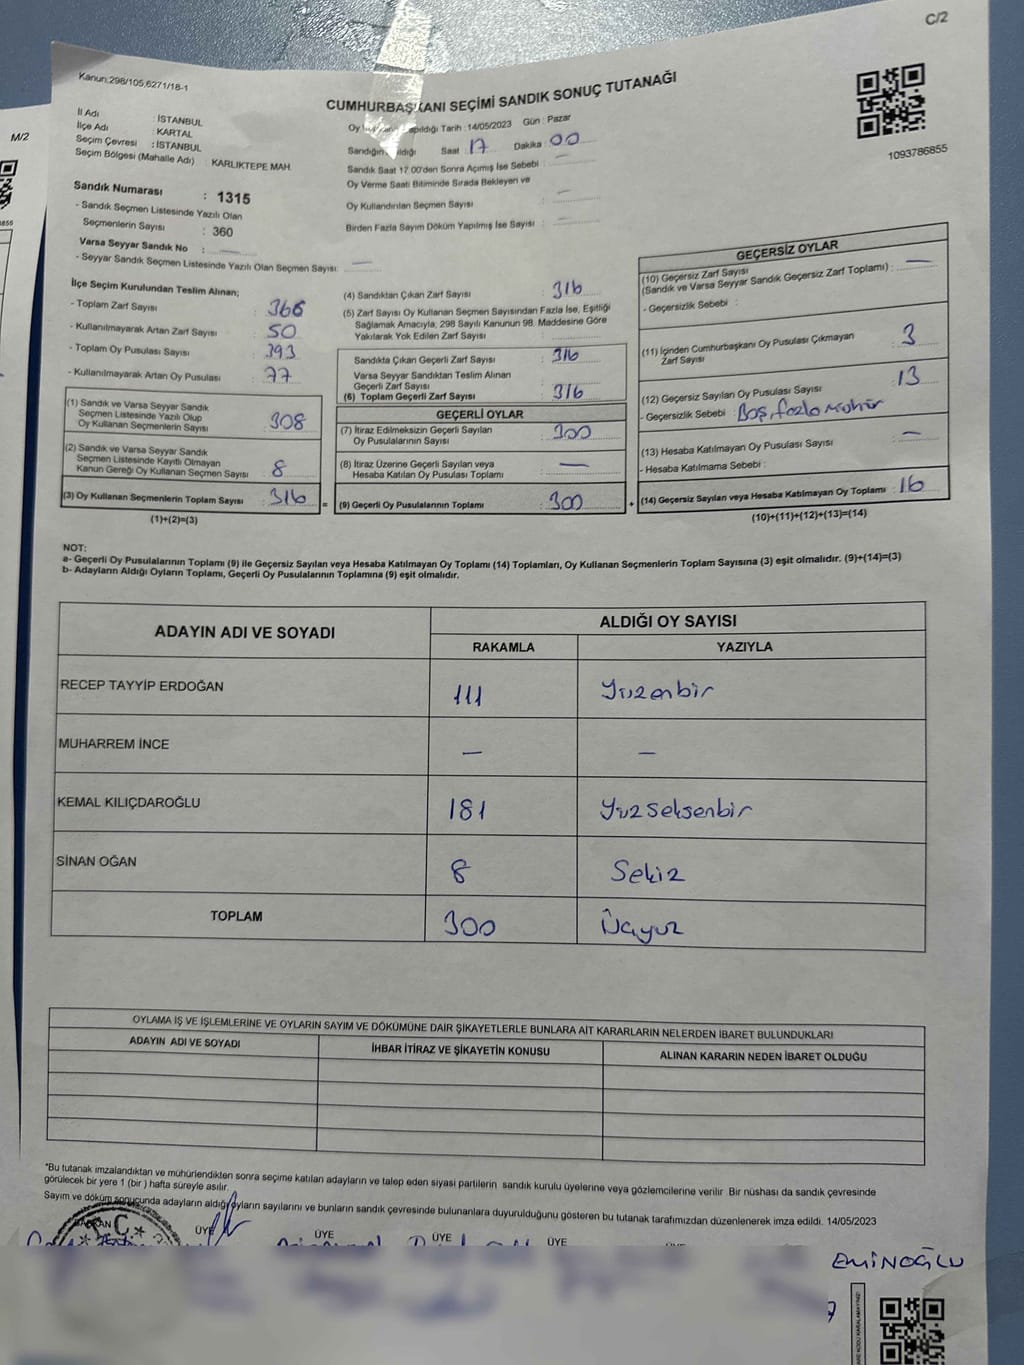 C/2
Kanun:298/105,6271/18-1
CUMHURBAŞKANI SEÇİMİ SANDIK SONUÇ TUTANAĞI
M/2
İl Adı : İSTANBUL
İlçe Adı : KARTAL
Seçim Çevresi : İSTANBUL
Seçim Bölgesi (Mahalle Adı) : KARLIKTEPE MAH.
Sandık Numarası : 1315
- Sandık Seçmen Listesinde Yazılı Olan
Seçmenlerin Sayısı : 360
Varsa Seyyar Sandık No : —
- Seyyar Sandık Seçmen Listesinde Yazılı Olan Seçmen Sayısı: —
Oy Tarih :14/05/2023 Gün : Pazar
Sandığın Saat 17 Dakika : 00
Sandık Saat 17.00'den Sonra Açımış İse Sebebi : —
Oy Verme Saati Bitiminde Sırada Bekleyen ve
Oy Kullandırılan Seçmen Sayısı : —
Birden Fazla Sayım Döküm Yapılmış İse Sayısı : —
1093786855
İlçe Seçim Kurulundan Teslim Alınan;
- Toplam Zarf Sayısı : 366
- Kullanılmayarak Artan Zarf Sayısı : 50
- Toplam Oy Pusulası Sayısı : 393
- Kullanılmayarak Artan Oy Pusulası : 77
(1) Sandık ve Varsa Seyyar Sandık
Seçmen Listesinde Yazılı Olup
Oy Kullanan Seçmenlerin Sayısı : 308
(2) Sandık ve Varsa Seyyar Sandık
Seçmen Listesinde Kayıtlı Olmayan
Kanun Gereği Oy Kullanan Seçmen Sayısı : 8
(3) Oy Kullanan Seçmenlerin Toplam Sayısı : 316 =
(1)+(2)=(3)
(4) Sandıktan Çıkan Zarf Sayısı : 316
(5) Zarf Sayısı Oy Kullanan Seçmen Sayısından Fazla İse, Eşitliği
Sağlamak Amacıyla, 298 Sayılı Kanunun 98. Maddesine Göre
Yakılarak Yok Edilen Zarf Sayısı :
Sandıkta Çıkan Geçerli Zarf Sayısı : 316
Varsa Seyyar Sandıktan Teslim Alınan
Geçerli Zarf Sayısı :
(6) Toplam Geçerli Zarf Sayısı : 316
GEÇERLİ OYLAR
(7) İtiraz Edilmeksizin Geçerli Sayılan
Oy Pusulalarının Sayısı : 300
(8) İtiraz Üzerine Geçerli Sayılan veya
Hesaba Katılan Oy Pusulası Toplamı : —
(9) Geçerli Oy Pusulalarının Toplamı : 300 +
GEÇERSİZ OYLAR
(10) Geçersiz Zarf Sayısı
(Sandık ve Varsa Seyyar Sandık Geçersiz Zarf Toplamı) : —
- Geçersizlik Sebebi :
(11) İçinden Cumhurbaşkanı Oy Pusulası Çıkmayan
Zarf Sayısı : 3
(12) Geçersiz Sayılan Oy Pusulası Sayısı : 13
- Geçersizlik Sebebi : Boş, fazla mühür
(13) Hesaba Katılmayan Oy Pusulası Sayısı : —
- Hesaba Katılmama Sebebi :
(14) Geçersiz Sayılan veya Hesaba Katılmayan Oy Toplamı : 16
(10)+(11)+(12)+(13)=(14)
NOT:
a- Geçerli Oy Pusulalarının Toplamı (9) ile Geçersiz Sayılan veya Hesaba Katılmayan Oy Toplamı (14) Toplamları, Oy Kullanan Seçmenlerin Toplam Sayısına (3) eşit olmalıdır. (9)+(14)=(3)
b- Adayların Aldığı Oyların Toplamı, Geçerli Oy Pusulalarının Toplamına (9) eşit olmalıdır.
ADAYIN ADI VE SOYADI
ALDIĞI OY SAYISI
RAKAMLA YAZIYLA
RECEP TAYYİP ERDOĞAN 111 Yüzonbir
MUHARREM İNCE — —
KEMAL KILIÇDAROĞLU 181 Yüzseksenbir
SİNAN OĞAN 8 Sekiz
TOPLAM 300 Üçyüz
OYLAMA İŞ VE İŞLEMLERİNE VE OYLARIN SAYIM VE DÖKÜMÜNE DAİR ŞİKAYETLERLE BUNLARA AİT KARARLARIN NELERDEN İBARET BULUNDUKLARI
ADAYIN ADI VE SOYADI İHBAR İTİRAZ VE ŞİKAYETİN KONUSU ALINAN KARARIN NEDEN İBARET OLDUĞU
*Bu tutanak imzalandıktan ve mühürlendikten sonra seçime katılan adayların ve talep eden siyasi partilerin sandık kurulu üyelerine veya gözlemcilerine verilir. Bir nüshası da sandık çevresinde
görülecek bir yere 1 (bir ) hafta süreyle asılır.
Sayım ve döküm sonucunda adayların aldığı oyların sayılarını ve bunların sandık çevresinde bulunanlara duyurulduğunu gösteren bu tutanak tarafımızdan düzenlenerek imza edildi. 14/05/2023
BAŞKAN ÜYE ÜYE ÜYE ÜYE
T.C.
EMİNOĞLU